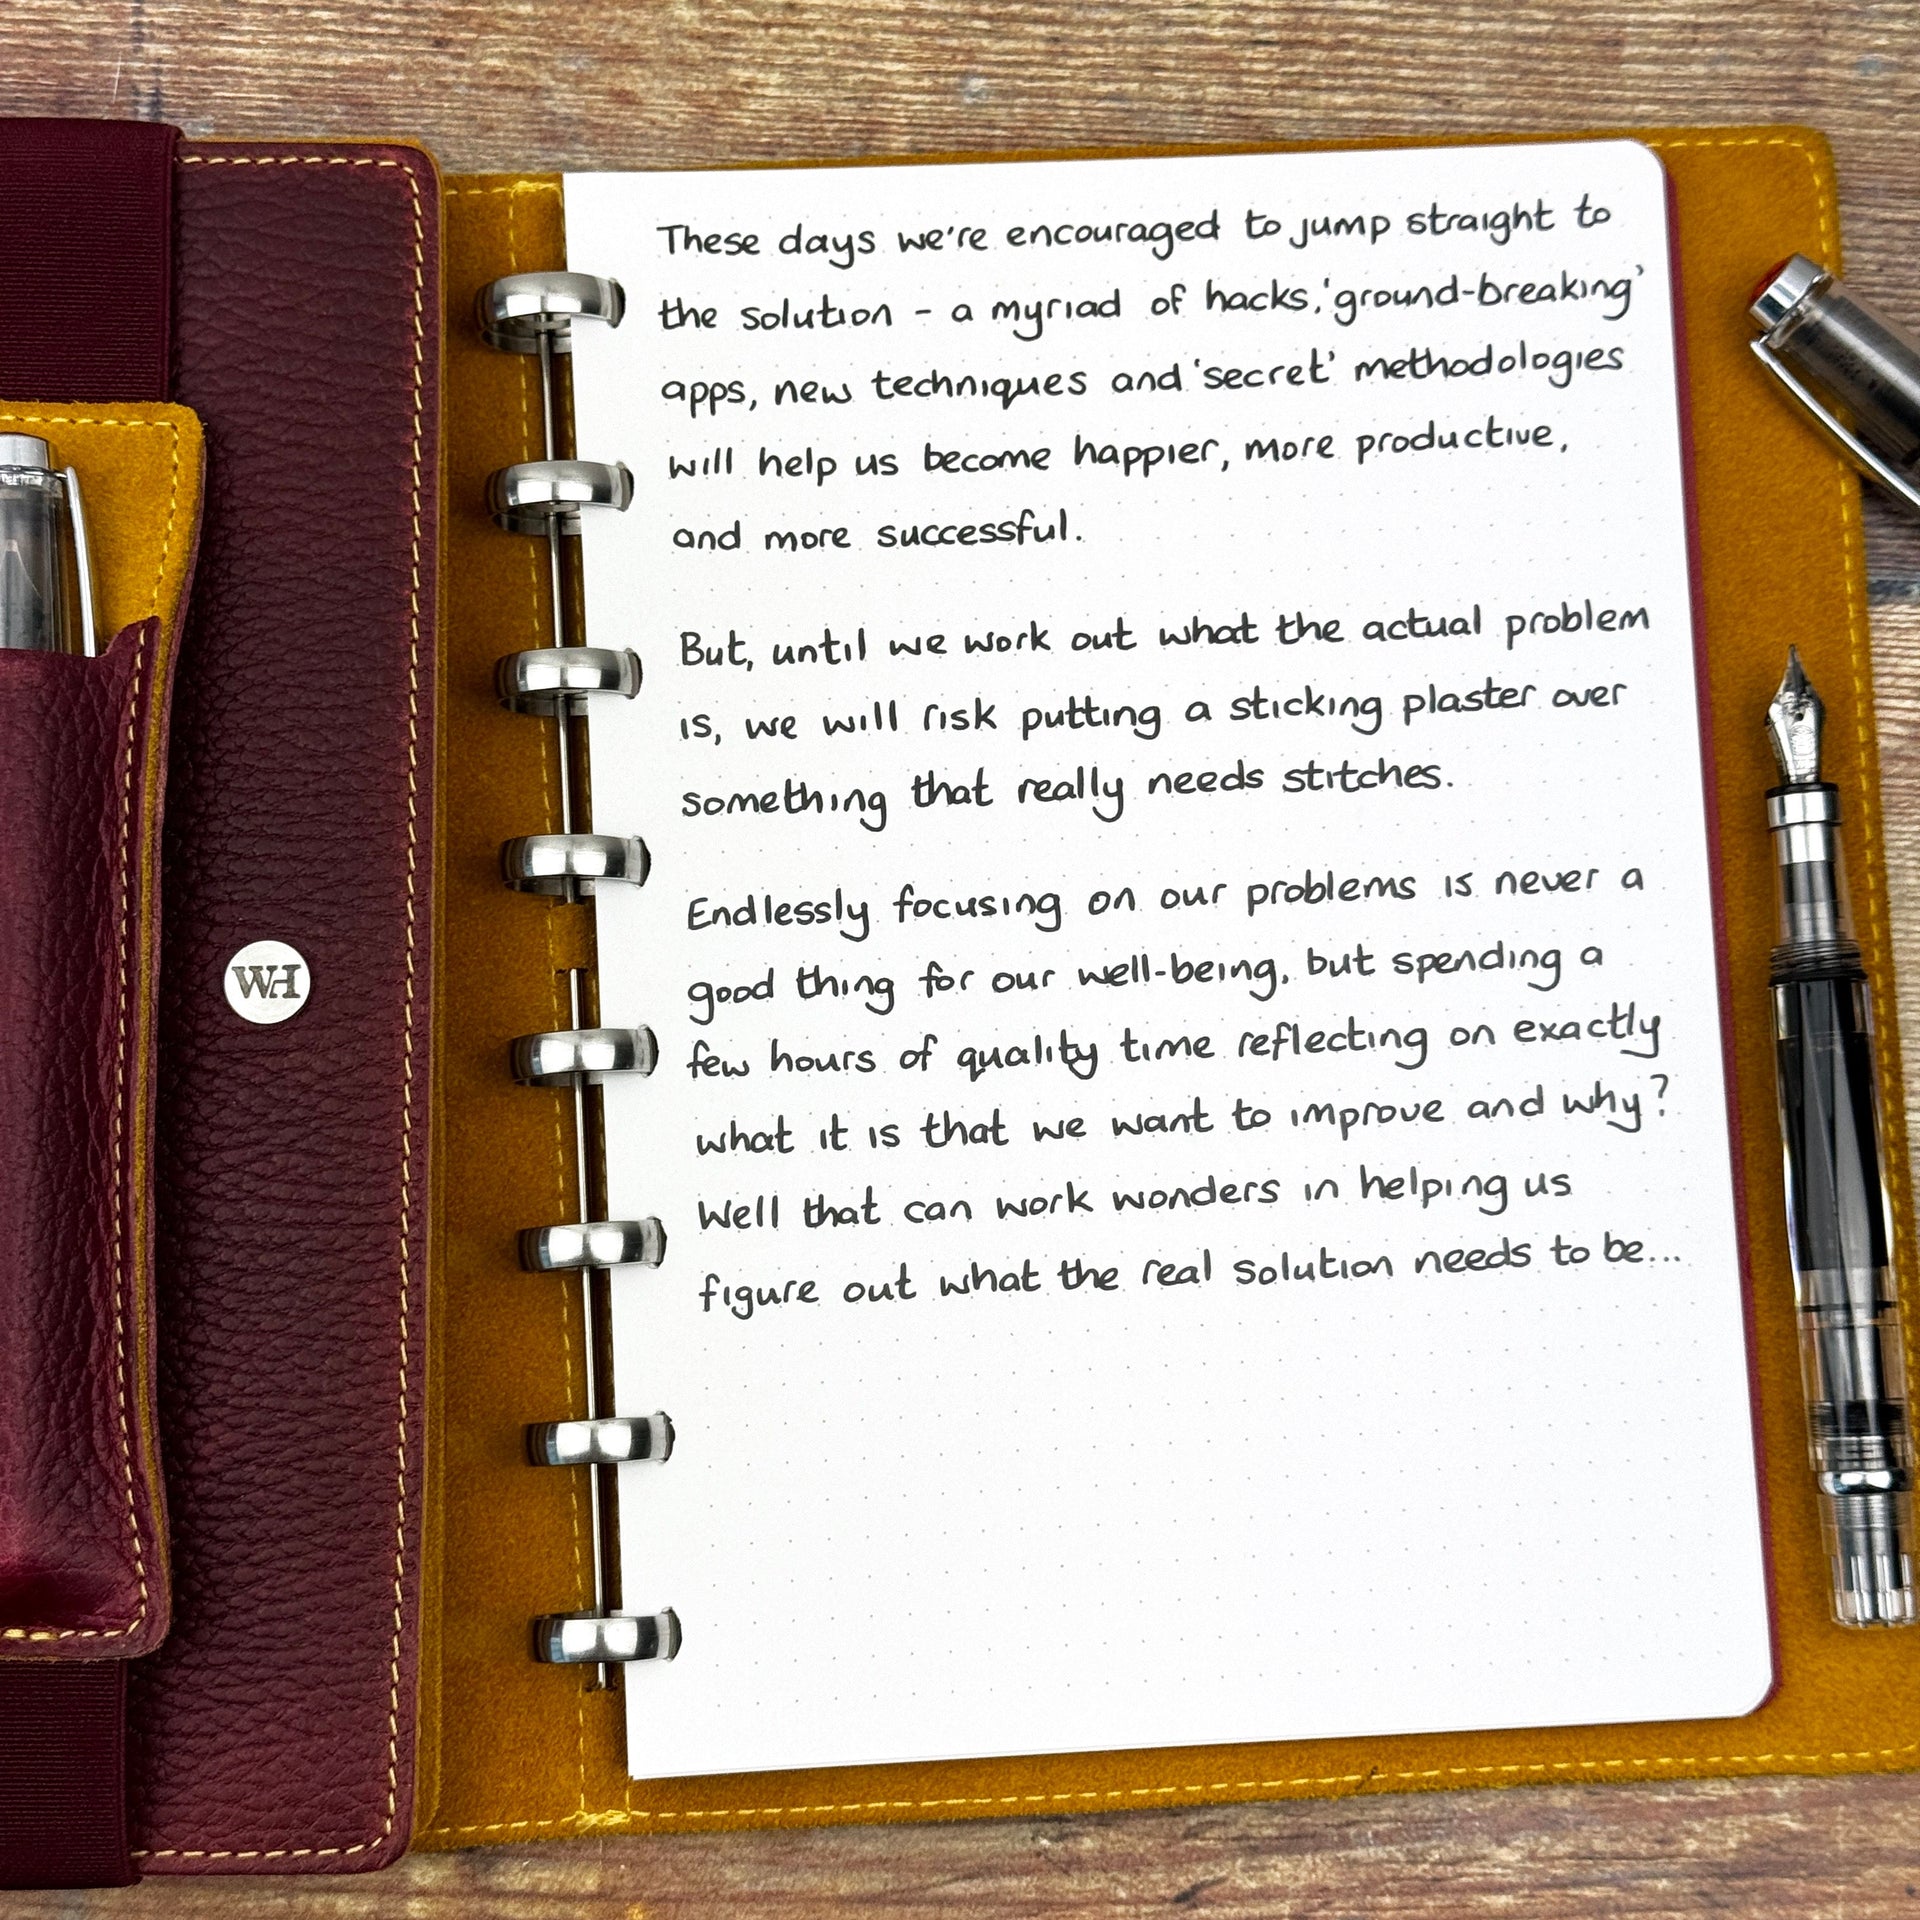 These days we're encouraged to jump straight to
the solution - a myriad of hacks, 'ground-breaking'
apps, new techniques and 'secret' methodologies
will help us become happier, more productive,
and more successful.
But, until we work out what the actual problem
is, we will risk putting a sticking plaster over
something that really needs stitches.
Endlessly focusing on our problems is never a
good thing for our well-being, but spending a
few hours of quality time reflecting on exactly
what it is that we want to improve and why?
Well that can work wonders in helping us
figure out what the real solution needs to be...
WH